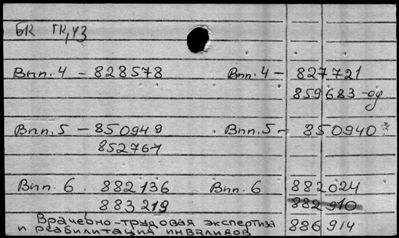 БК ГК,УЗ
Вып. 4 - 828578 Вып. 4 - 827721
859683-од
Вып. 5 - 850949 Вып. 5 - 850940*
852767
Вып. 6 882136 Вып. 6 882024
883219 882910
Врачебно-трудовая экспертиза 886914
и реабилитация инвалидов